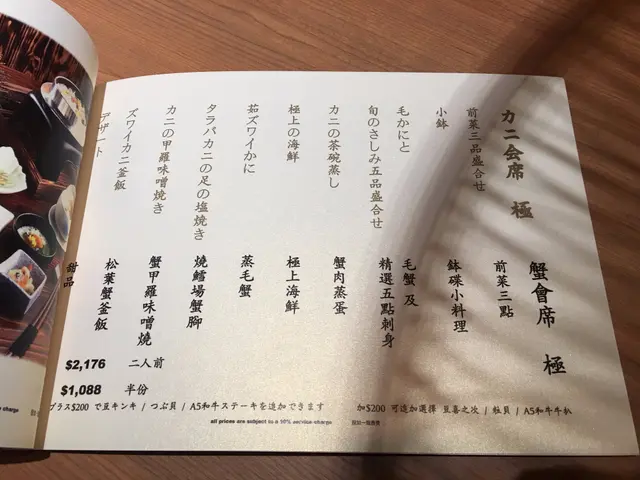 カニ会席 極
前菜三品盛合せ
小鉢
毛かにと
旬のさしみ五品盛合せ
カニの茶碗蒸し
極上の海鮮
茹ズワイかに
タラバカニの足の塩焼き
カニの甲羅味噌焼き
ズワイカニ釜飯
デザート
蟹會席 極
前菜三點
鉢碟小料理
毛蟹 及
精選五點刺身
蟹肉蒸蛋
極上海鮮
蒸毛蟹
燒鱈場蟹腳
蟹甲羅味噌燒
松葉蟹釜飯
甜品
$2,176 二人前
$1,088 半份
プラス$200 で豆キンキ / つぶ貝 / A5和牛ステーキを追加できます
加$200 可追加選擇 豆喜之次 / 粒貝 / A5和牛牛扒
all prices are subject to a 10% service-charge 設加一服務費